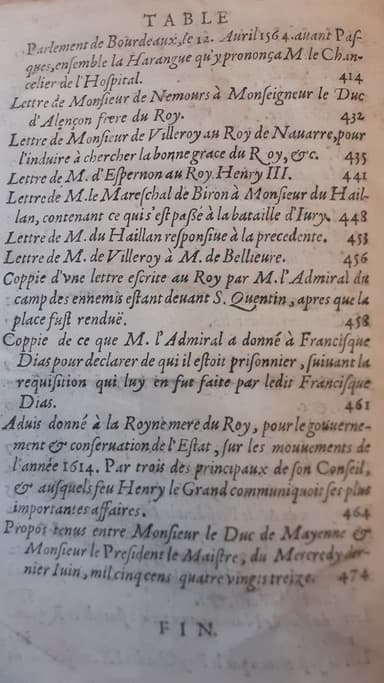 TABLE
Parlement de Bourdeaux, le 12. Auril 1564. auant Pas-
ques, ensemble la Harangue qu'y prononça M. le Chan-
celier de l'Hospital. 414
Lettre de Monsieur de Nemours à Monseigneur le Duc
d'Alençon frere du Roy. 432
Lettre de Monsieur de Villeroy au Roy de Nauarre, pour
l'induire à chercher la bonne grace du Roy, &c. 435
Lettre de M. d'Espernon au Roy Henry III. 441
Lettre de M. le Mareschal de Biron à Monsieur du Hail-
lan, contenant ce qui s'est passé à la bataille d'Iury. 448
Lettre de M. du Haillan responsiue à la precedente. 453
Lettre de M. de Villeroy à M. de Bellieure. 456
Coppie d'vne lettre escrite au Roy par M. l'Admiral du
camp des ennemis estant deuant S. Quentin, apres que la
place fust renduë. 458
Coppie de ce que M. l'Admiral a donné à Francisque
Dias pour declarer de qui il estoit prisonnier, suiuant la
requisition qui luy en fut faite par ledit Francisque
Dias. 461
Aduis donné à la Royne mere du Roy, pour le gouuerne-
ment & conseruation de l'Estat, sur les mouuements de
l'année 1614. Par trois des principaux de son Conseil,
& ausquels feu Henry le Grand communiquoit ses plus
importantes affaires. 464
Propos tenus entre Monsieur le Duc de Mayenne &
Monsieur le President le Maistre, du Mercredy der-
nier Iuin, mil cinq cens quatre vingts treize. 474
FIN.